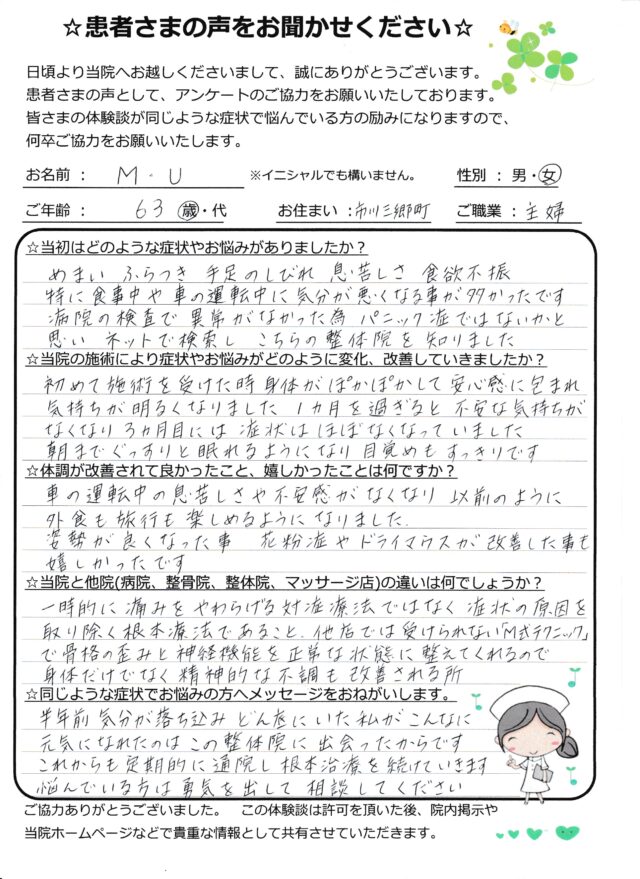 ☆患者さまの声をお聞かせください☆
日頃より当院へお越しくださいまして、誠にありがとうございます。
患者さまの声として、アンケートのご協力をお願いいたしております。
皆さまの体験談が同じような症状で悩んでいる方の励みになりますので、
何卒ご協力をお願いいたします。
お名前： M・U ※イニシャルでも構いません。 性別：男・女
ご年齢： 63 歳・代 お住まい：市川三郷町 ご職業：主婦
☆当初はどのような症状やお悩みがありましたか？
めまい ふらつき 手足のしびれ 息苦しさ 食欲不振
特に食事中や車の運転中に気分が悪くなる事が多かったです
病院の検査で異常がなかった為 パニック症ではないかと
思い ネットで検索し こちらの整体院を知りました
☆当院の施術により症状やお悩みがどのように変化、改善していきましたか？
初めて施術を受けた時 身体がぽかぽかして安心感に包まれ
気持ちが明るくなりました 1カ月を過ぎると 不安な気持ちが
なくなり 3カ月目には 症状は ほぼなくなっていました
朝までぐっすりと眠れるようになり 目覚めもすっきりです
☆体調が改善されて良かったこと、嬉しかったことは何ですか？
車の運転中の息苦しさや不安感がなくなり 以前のように
外食も旅行も楽しめるようになりました.
姿勢が良くなった事 花粉症やドライマウスが改善した事も
嬉しかったです
☆当院と他院(病院、整骨院、整体院、マッサージ店)の違いは何でしょうか？
一時的に痛みをやわらげる対症療法ではなく 症状の原因を
取り除く根本療法であること. 他店では受けられない「M式テクニック」
で骨格の歪みと神経機能を正常な状態に整えてくれるので
身体だけでなく精神的な不調も改善される所
☆同じような症状でお悩みの方へメッセージをおねがいします。
半年前 気分が落ち込み どん底にいた私が こんなに
元気になれたのは この整体院に出会ったからです
これからも定期的に通院し 根本治療を続けていきます
悩んでいる方は勇気を出して 相談してください
ご協力ありがとうございました。 この体験談は許可を頂いた後、院内掲示や
当院ホームページなどで貴重な情報として共有させていただきます。